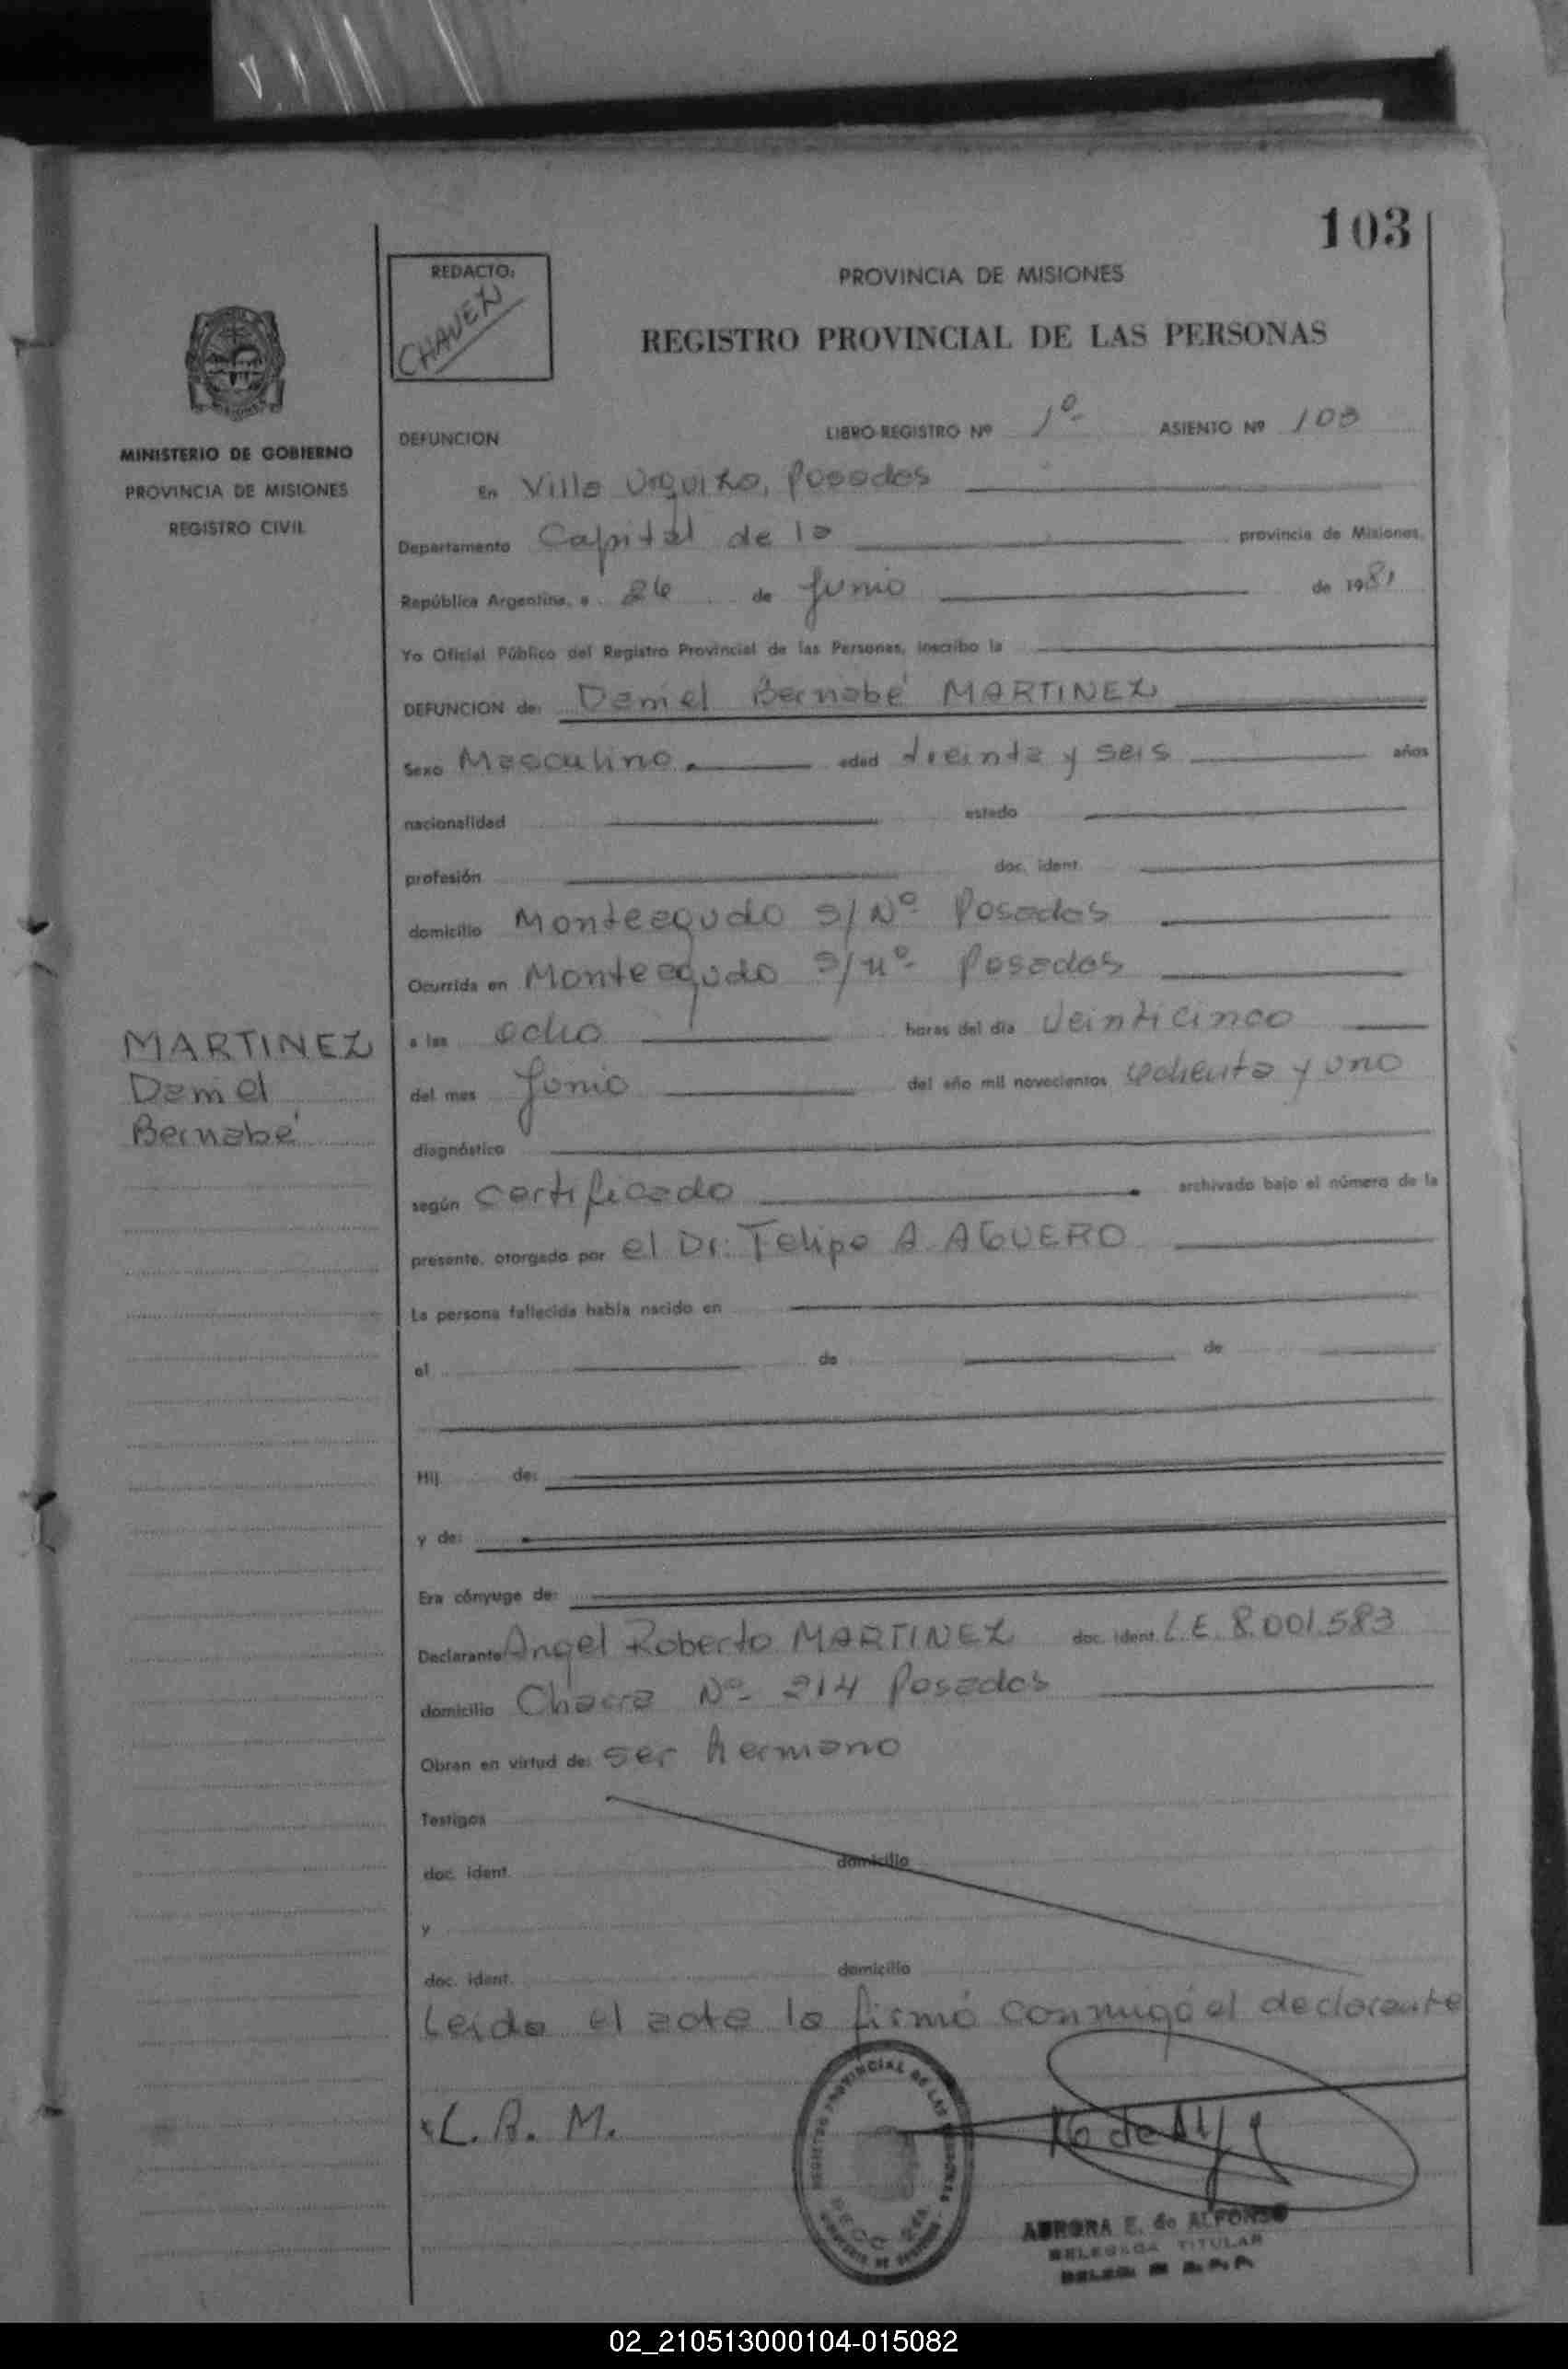 103
REDACTO:
CHAVEZ
PROVINCIA DE MISIONES
REGISTRO PROVINCIAL DE LAS PERSONAS
MINISTERIO DE GOBIERNO
PROVINCIA DE MISIONES
REGISTRO CIVIL
DEFUNCION LIBRO-REGISTRO Nº 1º ASIENTO Nº 103
En Villa Urquiza, Posadas
Departamento Capital de la provincia de Misiones,
República Argentina, a 26 de Junio de 1981
Yo Oficial Público del Registro Provincial de las Personas, inscribo la
DEFUNCION de: Daniel Bernabé MARTINEZ
Sexo Masculino. edad treinta y seis años
nacionalidad estado
profesión doc. ident.
domicilio Monteagudo S/Nº Posadas
Ocurrida en Monteagudo S/nº Posadas
a las ocho horas del día Veinticinco
del mes Junio del año mil novecientos ochenta y uno
MARTINEZ
Daniel
Bernabé
diagnóstico
según certificado archivado bajo el número de la
presente, otorgado por el Dr: Felipe A. AGUERO
La persona fallecida había nacido en
el de de
Hij de:
y de:
Era cónyuge de:
Declarante Angel Roberto MARTINEZ doc. ident. L.E. 8.001.583
domicilio Chacra Nº 214 Posadas
Obran en virtud de: ser hermano
Testigos
doc. ident. domicilio
y
doc. ident. domicilio
Leida el acta la firmó conmigo el declarante
L. R. M.
REGISTRO PROVINCIAL DE LAS PERSONAS
AURORA E. de ALFONSO
DELEGADA TITULAR
02_210513000104-015082